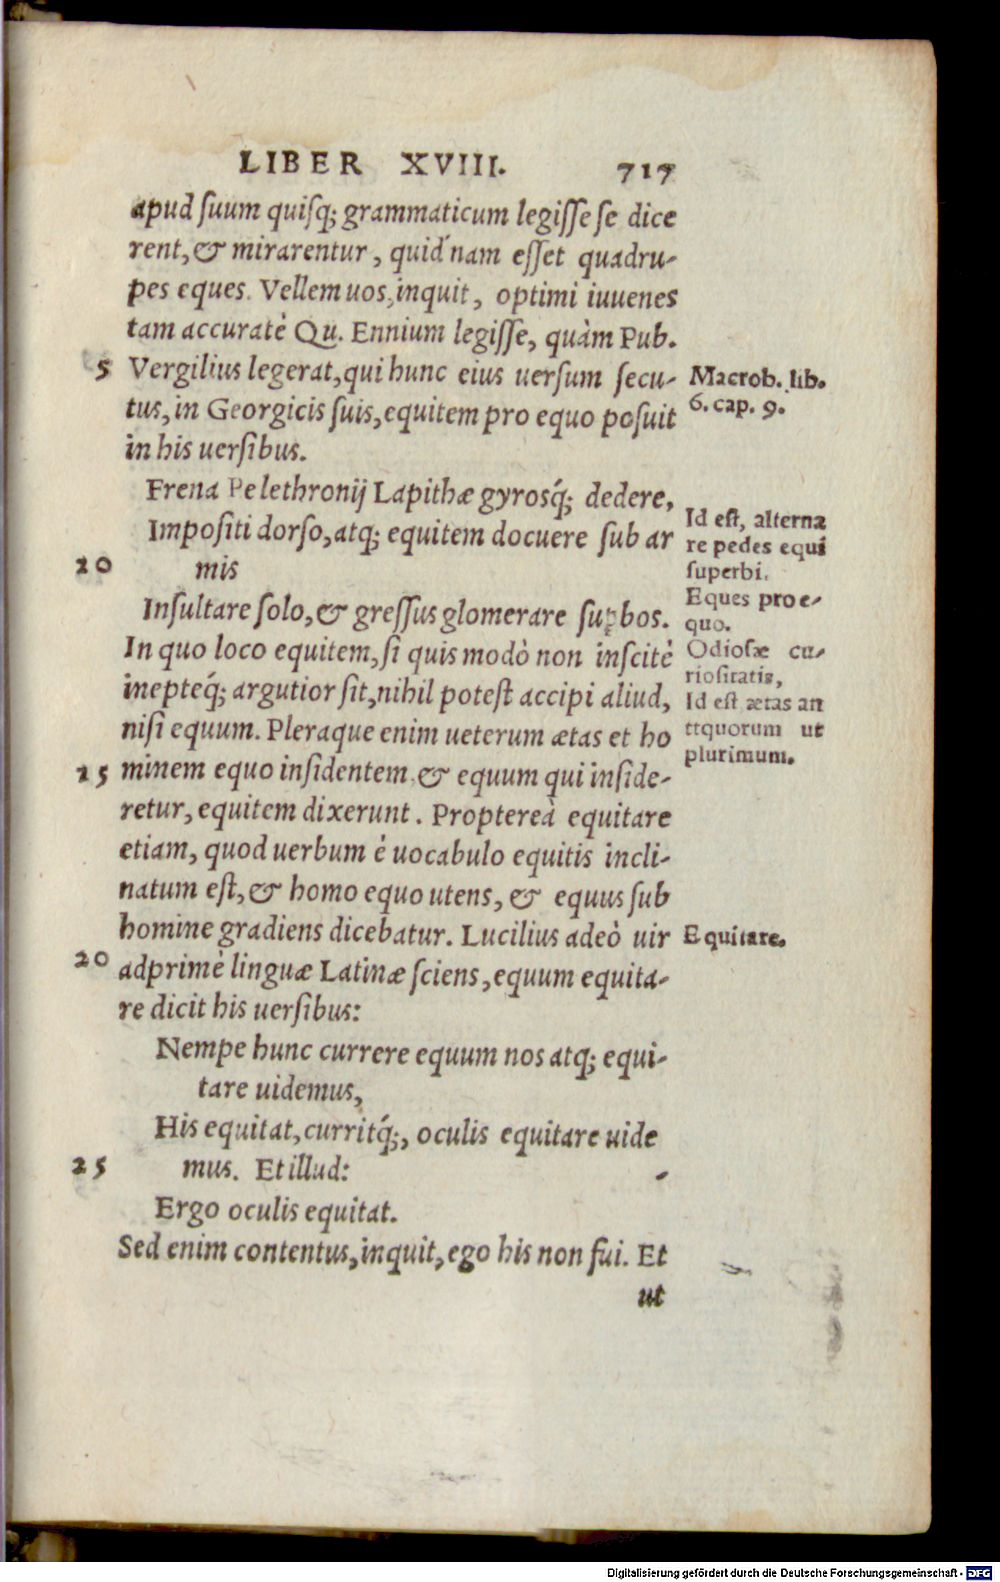 LIBER XVIII. 717
apud ſuum quiſq; grammaticum legiſſe ſe dice
rent, & mirarentur, quid'nam eſſet quadru-
pes eques. Vellem uos, inquit, optimi iuuenes
tam accuratè Qu. Ennium legiſſe, quàm Pub.
5 Vergilius legerat, qui hunc eius uerſum ſecu-
tus, in Georgicis ſuis, equitem pro equo poſuit
in his uerſibus.
Frena Pelethronij Lapithæ gyrosq́; dedere,
Impoſiti dorſo, atq; equitem docuere ſub ar
20 mis
Inſultare ſolo, & greſſus glomerare ſuꝑbos.
In quo loco equitem, ſi quis modò non inſcitè
inepteq́; argutior ſit, nihil poteſt accipi aliud,
niſi equum. Pleraque enim ueterum ætas et ho
25 minem equo inſidentem & equum qui inſide-
retur, equitem dixerunt. Proptereà equitare
etiam, quod uerbum è uocabulo equitis incli-
natum eſt, & homo equo utens, & equus ſub
homine gradiens dicebatur. Lucilius adeò uir
20 adprimè linguæ Latinæ ſciens, equum equita-
re dicit his uerſibus:
Nempe hunc currere equum nos atq; equi-
tare uidemus,
His equitat, curritq́;, oculis equitare uide
25 mus. Et illud:
Ergo oculis equitat.
Sed enim contentus, inquit, ego his non fui. Et
ut
Macrob. lib.
6. cap. 9.
Id eſt, alterna
re pedes equi
ſuperbi.
Eques pro e-
quo.
Odioſæ cu-
rioſitatis,
Id eſt ætas an
ttquorum ut
plurimum.
Equitare.
Digitalisierung gefördert durch die Deutsche Forschungsgemeinschaft - DFG